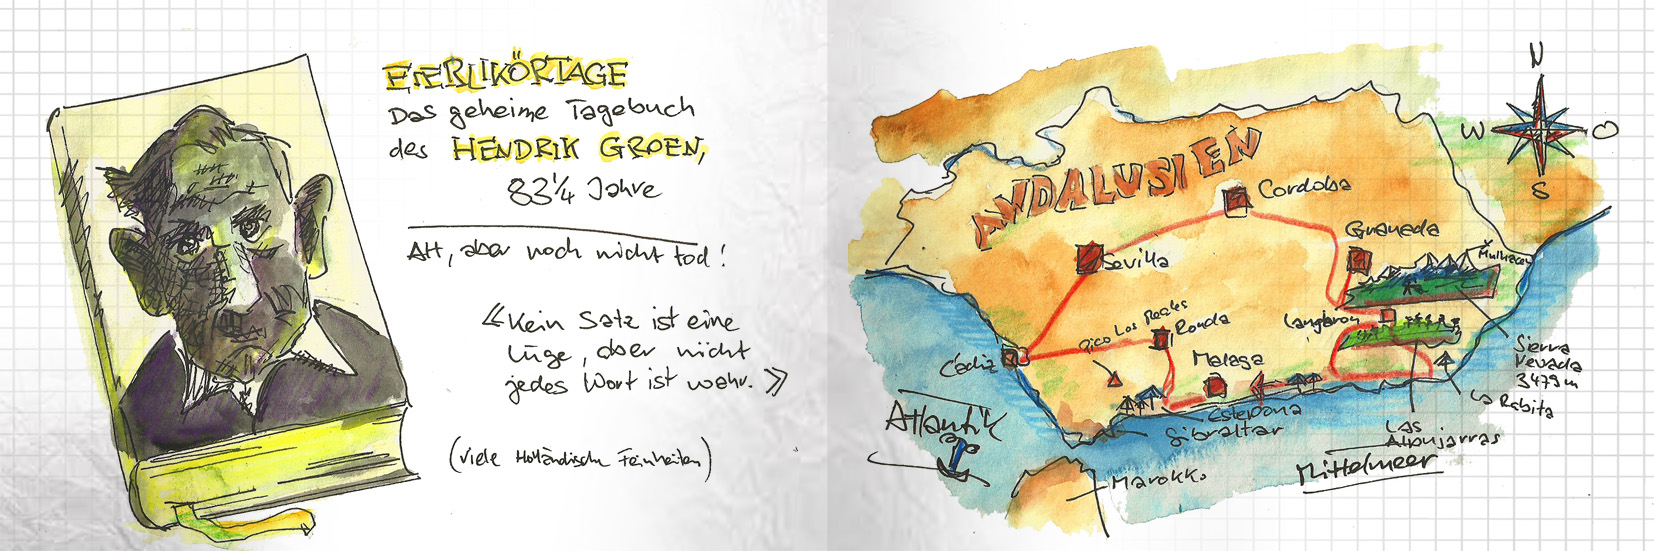 EIERLIKÖRTAGE
Das geheime Tagebuch
des HENDRIK GROEN,
83 1/4 Jahre
Alt, aber noch nicht tod!
«Kein Satz ist eine
Lüge, aber nicht
jedes Wort ist wahr.»
(viele Holländische Feinheiten)
N
W
O
S
ANDALUSIEN
Cordoba
Granada
Sevilla
Mulhacen
Pico Los Reales
Ronda
Lanjaron
Cádiz
Malaga
Sierra
Nevada
3479m
La Rabita
Estepona
Gibraltar
Las
Alpujarras
Atlantik
Mittelmeer
Marokko